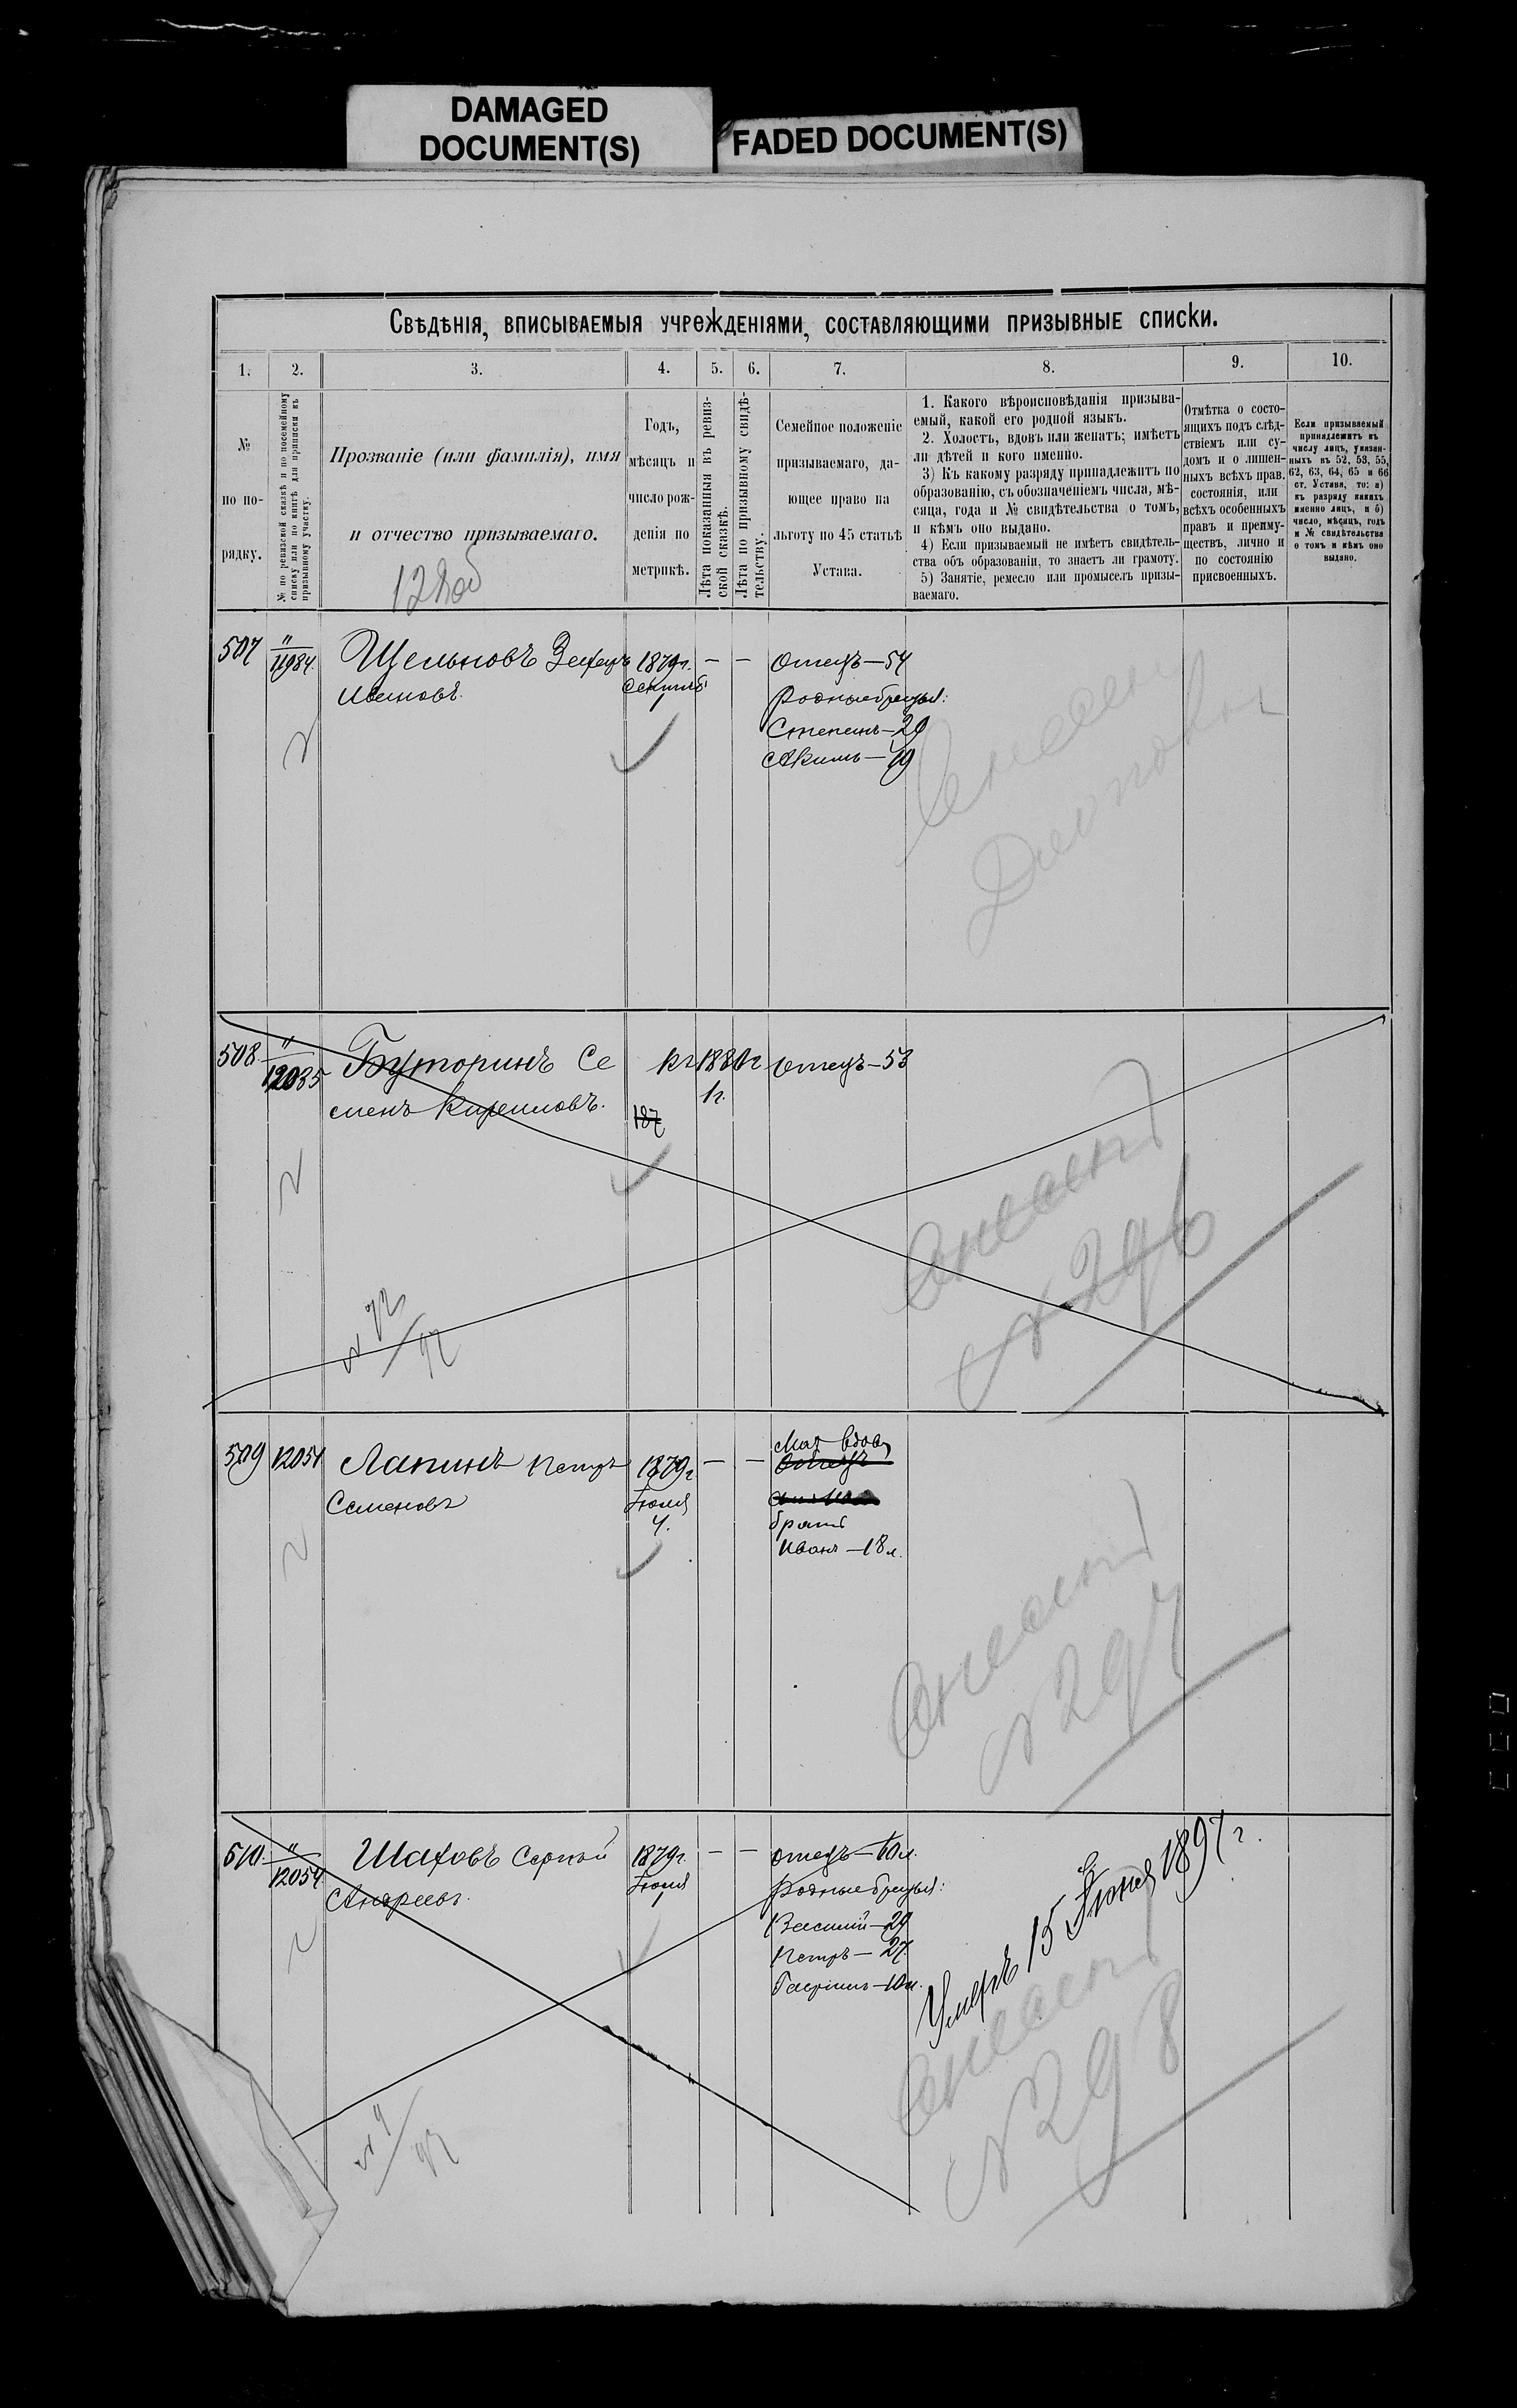 DAMAGED
DOCUMENT(S)
FADED DOCUMENT(S)
Свѣдѣнія, вписываемыя учрежденіями, составляющими призывные списки.
1. 2. 3. 4. 5. 6. 7. 8. 9. 10.
№
по по-
рядку.
№ по ревизской сказкѣ и по посемейному
списку или по книгѣ для приписки къ
призывному участку.
Прозваніе (или фамилія), имя
и отчество призываемаго.
Годъ,
мѣсяцъ и
число рож-
денія по
метрикѣ.
Лѣта показанныя въ ревиз-
ской сказкѣ.
Лѣта по призывному свидѣ-
тельству.
Семейное положеніе
призываемаго, да-
ющее право на
льготу по 45 статьѣ
Устава.
1. Какого вѣроисповѣданія призыва-
емый, какой его родной языкъ.
2. Холостъ, вдовъ или женатъ; имѣетъ
ли дѣтей и кого именно.
3) Къ какому разряду принадлежитъ по
образованію, съ обозначеніемъ числа, мѣ-
сяца, года и № свидѣтельства о томъ,
и кѣмъ оно выдано.
4) Если призываемый не имѣетъ свидѣтель-
ства объ образованіи, то знаетъ ли грамоту.
5) Занятіе, ремесло или промыселъ призы-
ваемаго.
Отмѣтка о состо-
ящихъ подъ слѣд-
ствіемъ или су-
домъ и о лишен-
ныхъ всѣхъ прав.
состоянія, или
всѣхъ особенныхъ
правъ и преиму-
ществъ, лично и
по состоянію
присвоенныхъ.
Если призываемый
принадлежитъ къ
числу лицъ, указан-
ныхъ въ 52, 53, 55,
62, 63, 64, 65 и 66
ст. Устава, то: а)
къ разряду какихъ
именно лицъ, и б)
число, мѣсяцъ, годъ
и № свидѣтельства
о томъ и кѣмъ оно
выдано.
507 " 11984. Щельновъ 1879г. — — Отецъ—54
Ивановъ. Сентяб. Родные братья:
1 Степанъ—29
Акимъ—19
508 " 12035 Буторинъ Се 1880г Отецъ—53
менъ Кириловъ.
187
№ 92
Онесенъ
№ 296
509 12051 Лапинъ Петръ 1879г — — Мат вдов
Семеновъ Іюля Отецъ
4. братъ
Иванъ—18 л.
Онесенъ
№ 297
510 " 12054 Шаховъ Сергѣй 1879г. — — Отецъ—60л.
Андреевъ. Іюля Родные братья:
1 Василій—29
Петръ—27
Гаврiилъ—10л.
Умеръ 15 Іюня 1897 г.
Онесенъ
№ 298